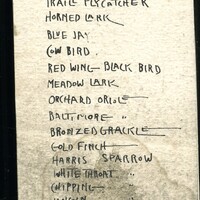 TRAILL FLYCATCHER
HORNED LARK
BLUE JAY
COW BIRD.
RED WING BLACK BIRD
MEADOW LARK
ORCHARD ORIOLE
BALTIMORE "
BRONZED GRACKLE
GOLD FINCH
HARRIS SPARROW
WHITE THROAT "
CHIPPING "
LINCOLN "